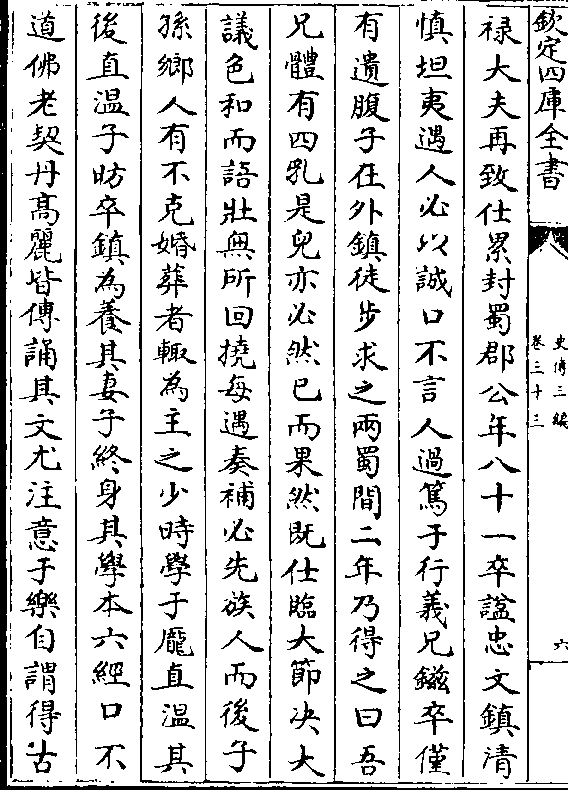 欽定四庫全書
史傳三編
卷三十三
六
禄大夫再致仕累封蜀郡公年八十一卒諡忠文鎮清
慎坦夷遇人必以誠口不言人過篤于行義兄鎡卒僅
有遺腹子在外鎮徒步求之兩蜀間二年乃得之曰吾
兄體有四乳是兒亦必然已而果然既仕臨大節决大
議色和而語壯無所回撓每遇奏補必先族人而後子
孫鄉人有不克婚葬者輒為主之少時學于龐直温其
後直温子昉卒鎮為養其妻子終身其學本六經口不
道佛老契丹髙麗皆傳誦其文尤注意于樂自謂得古